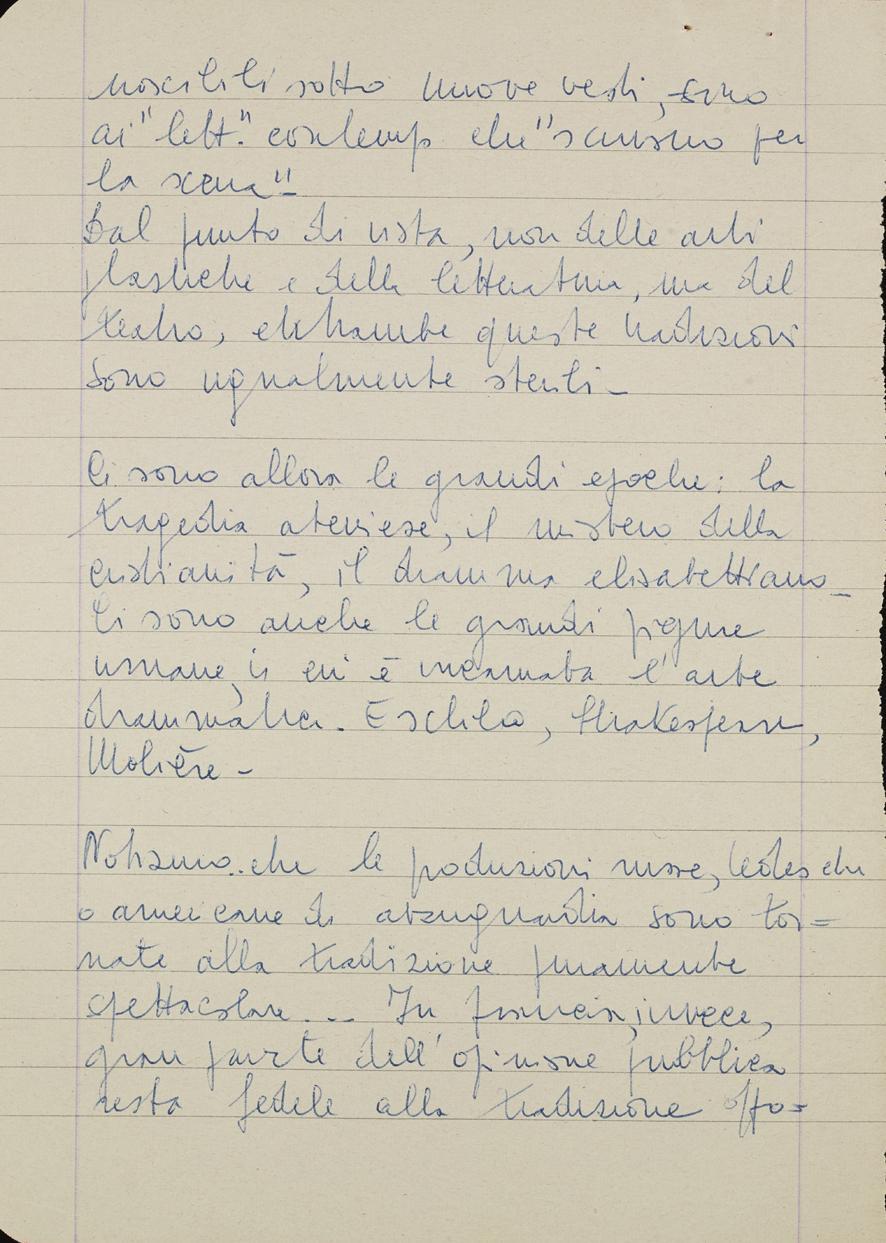 noscibili sotto nuove vesti, sino
ai "lett." contemp che "scrivono per
la scena"_
Dal punto di vista, non delle arti
plastiche e della letteratura, ma del
teatro, entrambe queste tradizioni
sono ugualmente sterili_
Ci sono allora le grandi epoche: la
tragedia ateniese, il mistero della
cristianità, il dramma elisabettiano_
Ci sono anche le grandi figure
umane in cui è incarnata l'arte
drammatica. Eschilo, Shakespeare,
Molière_
Notiamo.. che le produzioni russe, tedesche
o americane di avanguardia sono tor=
nate alla tradizione puramente
spettacolare... In Francia, invece,
gran parte dell'opinione pubblica
resta fedele alla tradizione oppo=